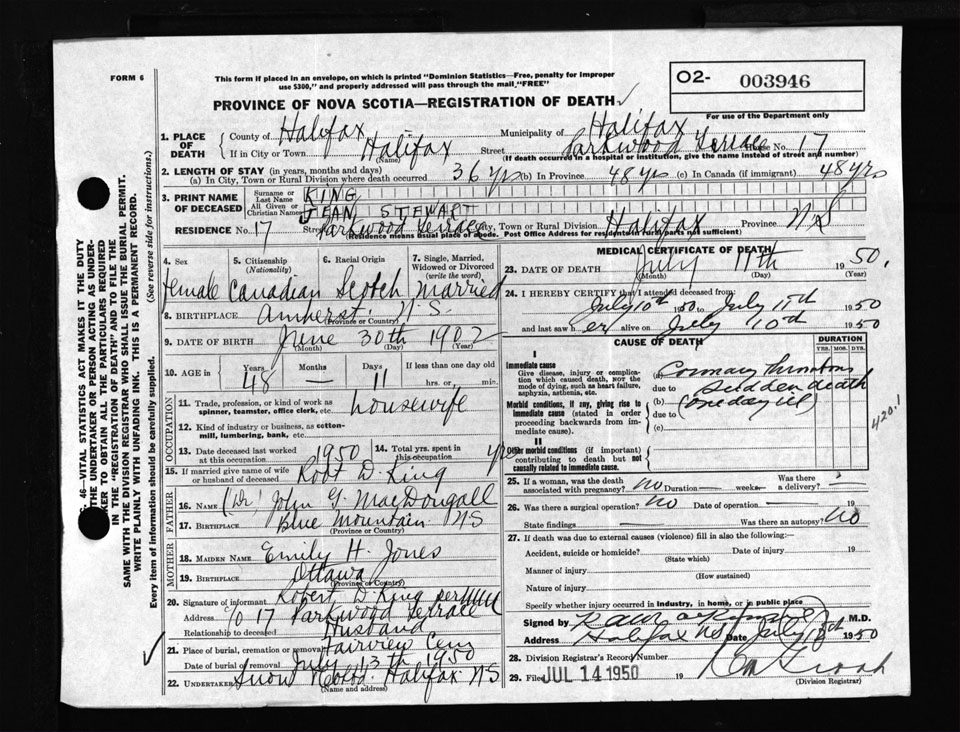 FORM 6
This form if placed in an envelope, on which is printed "Dominion Statistics—Free, penalty for improper
use $300," and properly addressed will pass through the mail "FREE"
O2- 003946
For use of the Department only
PROVINCE OF NOVA SCOTIA—REGISTRATION OF DEATH
1. PLACE OF DEATH
County of Halifax Municipality of Halifax
If in City or Town Halifax (Name) Street Parkwood Terrace House No. 17
(If death occurred in a hospital or institution, give the name instead of street and number)
2. LENGTH OF STAY (in years, months and days)
(a) In City, Town or Rural Division where death occurred 36 yrs (b) In Province 48 yrs (c) In Canada (if immigrant) 48 yrs
3. PRINT NAME OF DECEASED
Surname or Last Name KING
All Given or Christian Names JEAN STEWART
RESIDENCE No. 17 Street Parkwood Terrace City, Town or Rural Division Halifax Province NS
(Residence means usual place of abode. Post Office Address for residents in rural parts not sufficient)
4. Sex female
5. Citizenship (Nationality) Canadian
6. Racial Origin Scotch
7. Single, Married, Widowed or Divorced (write the word) Married
8. BIRTHPLACE Amherst N.S. (Province or Country)
9. DATE OF BIRTH June (Month) 30th (Day) 1902 (Year)
10. AGE in Years 48 Months — Days 11 If less than one day old hrs. or min.
OCCUPATION
11. Trade, profession, or kind of work as spinner, teamster, office clerk, etc. housewife
12. Kind of industry or business, as cotton-mill, lumbering, bank, etc.
13. Date deceased last worked at this occupation 1950
14. Total yrs. spent in this occupation
15. If married give name of wife or husband of deceased Robt D. King
FATHER
16. NAME (Dr) John G. MacDougall
17. BIRTHPLACE Blue Mountain NS (Province or Country)
MOTHER
18. MAIDEN NAME Emily H. Jones
19. BIRTHPLACE Ottawa (Province or Country)
20. Signature of informant Robert D. King per
Address 17 Parkwood Terrace
Relationship to deceased Husband
21. Place of burial, cremation or removal Fairview Cem
Date of burial or removal July 13th 1950
22. Undertaker Snow Halifax NS
(Name and address)
MEDICAL CERTIFICATE OF DEATH
23. DATE OF DEATH July (Month) 11th (Day) 1950 (Year)
24. I HEREBY CERTIFY that I attended deceased from:
July 10th 1950 to July 11th 1950
and last saw her alive on July 10th 1950
CAUSE OF DEATH
DURATION
YRS. MOS. DYS.
I
Immediate cause
Give disease, injury or complication which caused death, NOT the mode of dying, such as heart failure, asphyxia, asthenia, etc.
(a) Coronary Thrombosis
due to sudden death
Morbid conditions, if any, giving rise to immediate cause (stated in order proceeding backwards from immediate cause).
(b) (one day ill)
due to
(c)
420.1
II
Other morbid conditions (if important) contributing to death but not causally related to immediate cause.
25. If a woman, was the death associated with pregnancy? no Duration weeks Was there a delivery?
26. Was there a surgical operation? no Date of operation 19
State findings Was there an autopsy? no
27. If death was due to external causes (violence) fill in also the following:
Accident, suicide or homicide? (State which) Date of injury 19
Manner of injury (How sustained)
Nature of injury
Specify whether injury occurred in industry, in home, or in public place
Signed by M.D.
Address Halifax NS Date July 1950
28. Division Registrar's Record Number
29. Filed JUL 14 1950 19
(Division Registrar)
46—VITAL STATISTICS ACT MAKES IT THE DUTY
THE UNDERTAKER OR PERSON ACTING AS UNDER-
KER TO OBTAIN ALL THE PARTICULARS REQUIRED
IN THE "REGISTRATION OF DEATH" AND TO FILE THE
SAME WITH THE DIVISION REGISTRAR WHO SHALL ISSUE THE BURIAL PERMIT.
WRITE PLAINLY WITH UNFADING INK. THIS IS A PERMANENT RECORD.
Every item of information should be carefully supplied. (See reverse side for instructions.)